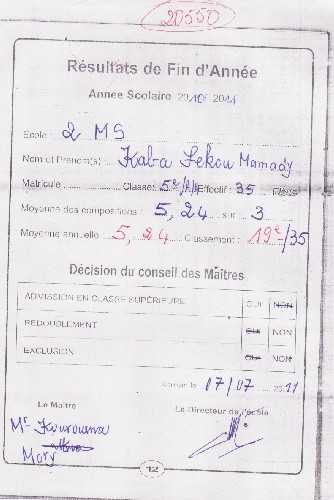 20550
Résultats de Fin d'Année
Année Scolaire 2010 2011
Ecole : 2 MS
Nom et Prénom(s) : Kaba Sekou Mamady
Matricule : Classe: 5e/ Effectif : 35
Moyenne des compositions : 5,24 sur 3
Moyenne annuelle 5,24 Classement : 19e/35
Décision du conseil des Maîtres
ADMISSION EN CLASSE SUPÉRIEURE OUI NON
REDOUBLEMENT OUI NON
EXCLUSION OUI NON
17/07 2011
Le Maître Le Directeur de l'école
Mr Kourouma
Mory
12